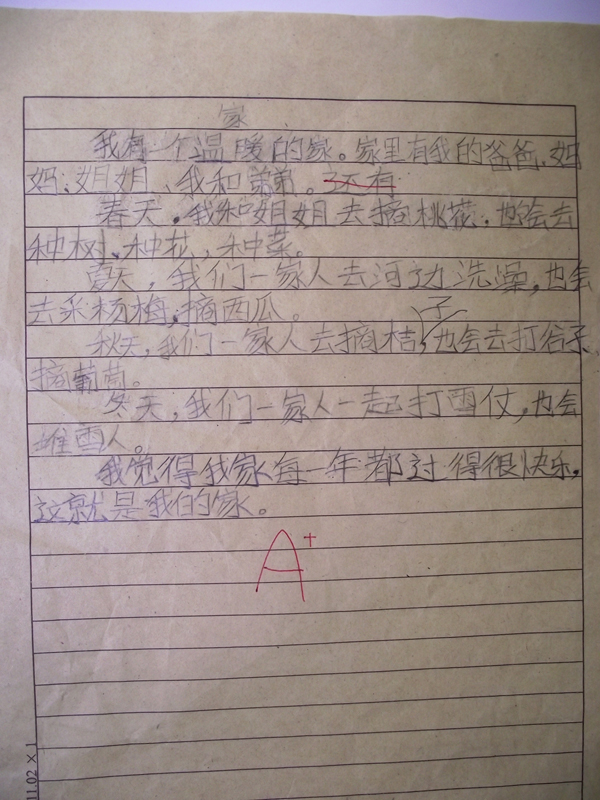 家
我有一个温暖的家。家里有我的爸爸、妈
妈、姐姐、我和弟弟。还有
春天,我和姐姐去摘桃花,也会去
种树、种花、种菜。
夏天,我们一家人去河边洗澡,也会
去采杨梅,摘西瓜。
秋天,我们一家人去摘桔子,也会去打谷子、
摘葡萄。
冬天,我们一家人一起打雪仗,也会
堆雪人。
我觉得我家每一年都过得很快乐,
这就是我的家。
A+
11.02 X 1